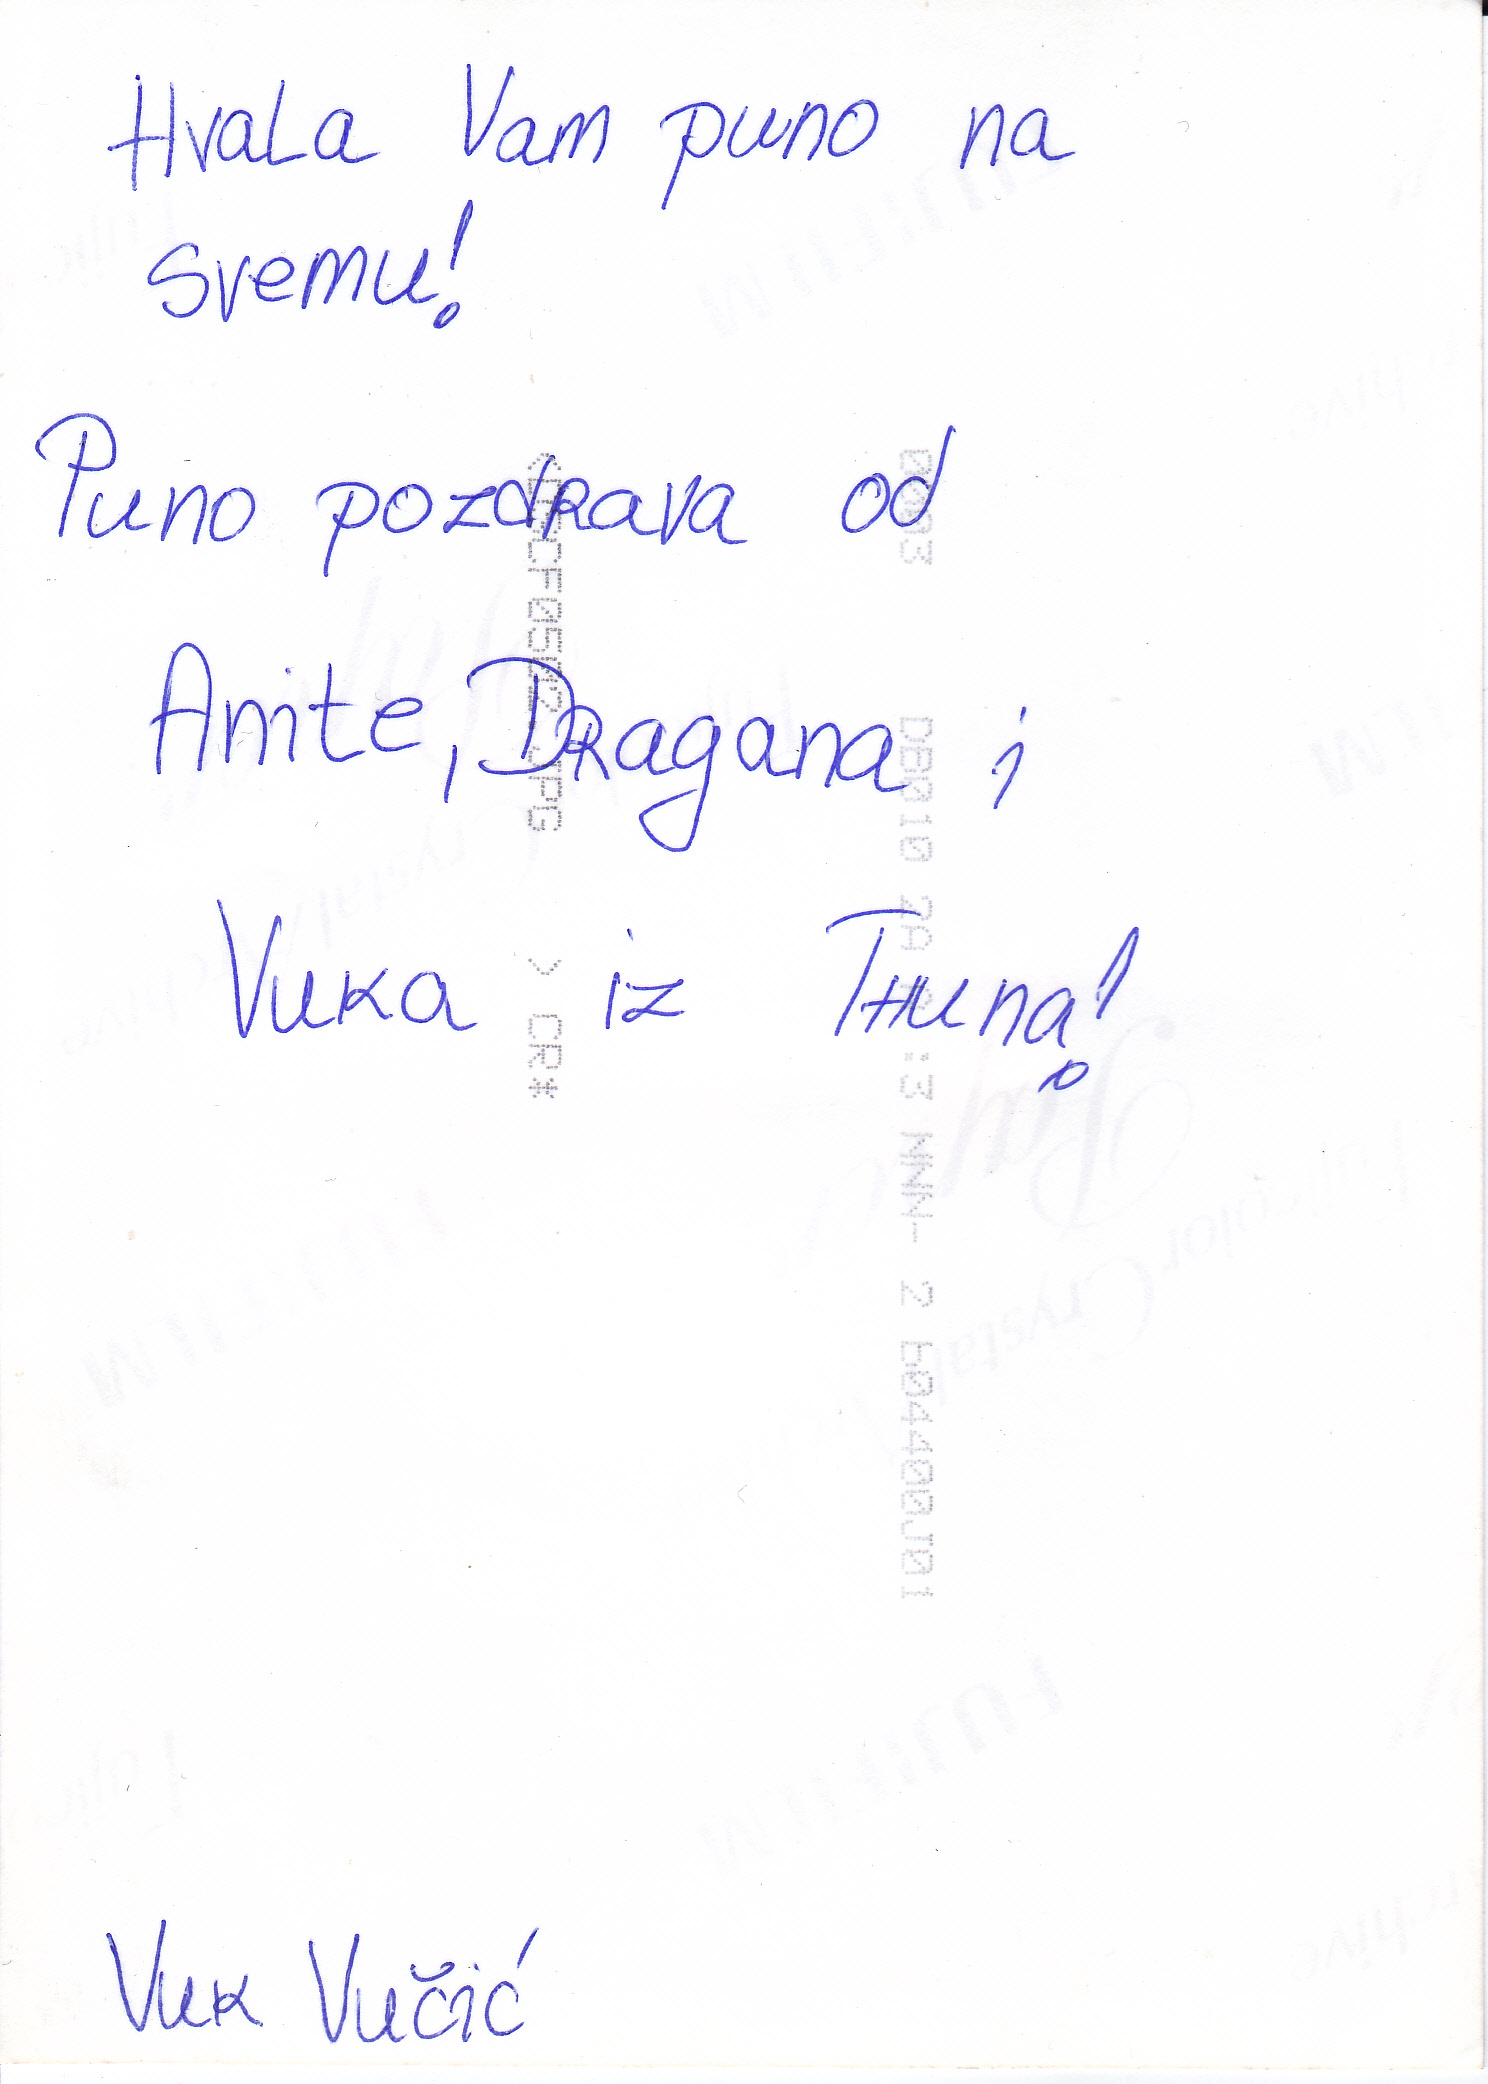 Hvala Vam puno na
svemu!
Puno pozdrava od
Anite, Dragana i
Vuka iz Thuna!
Vuk Vučić